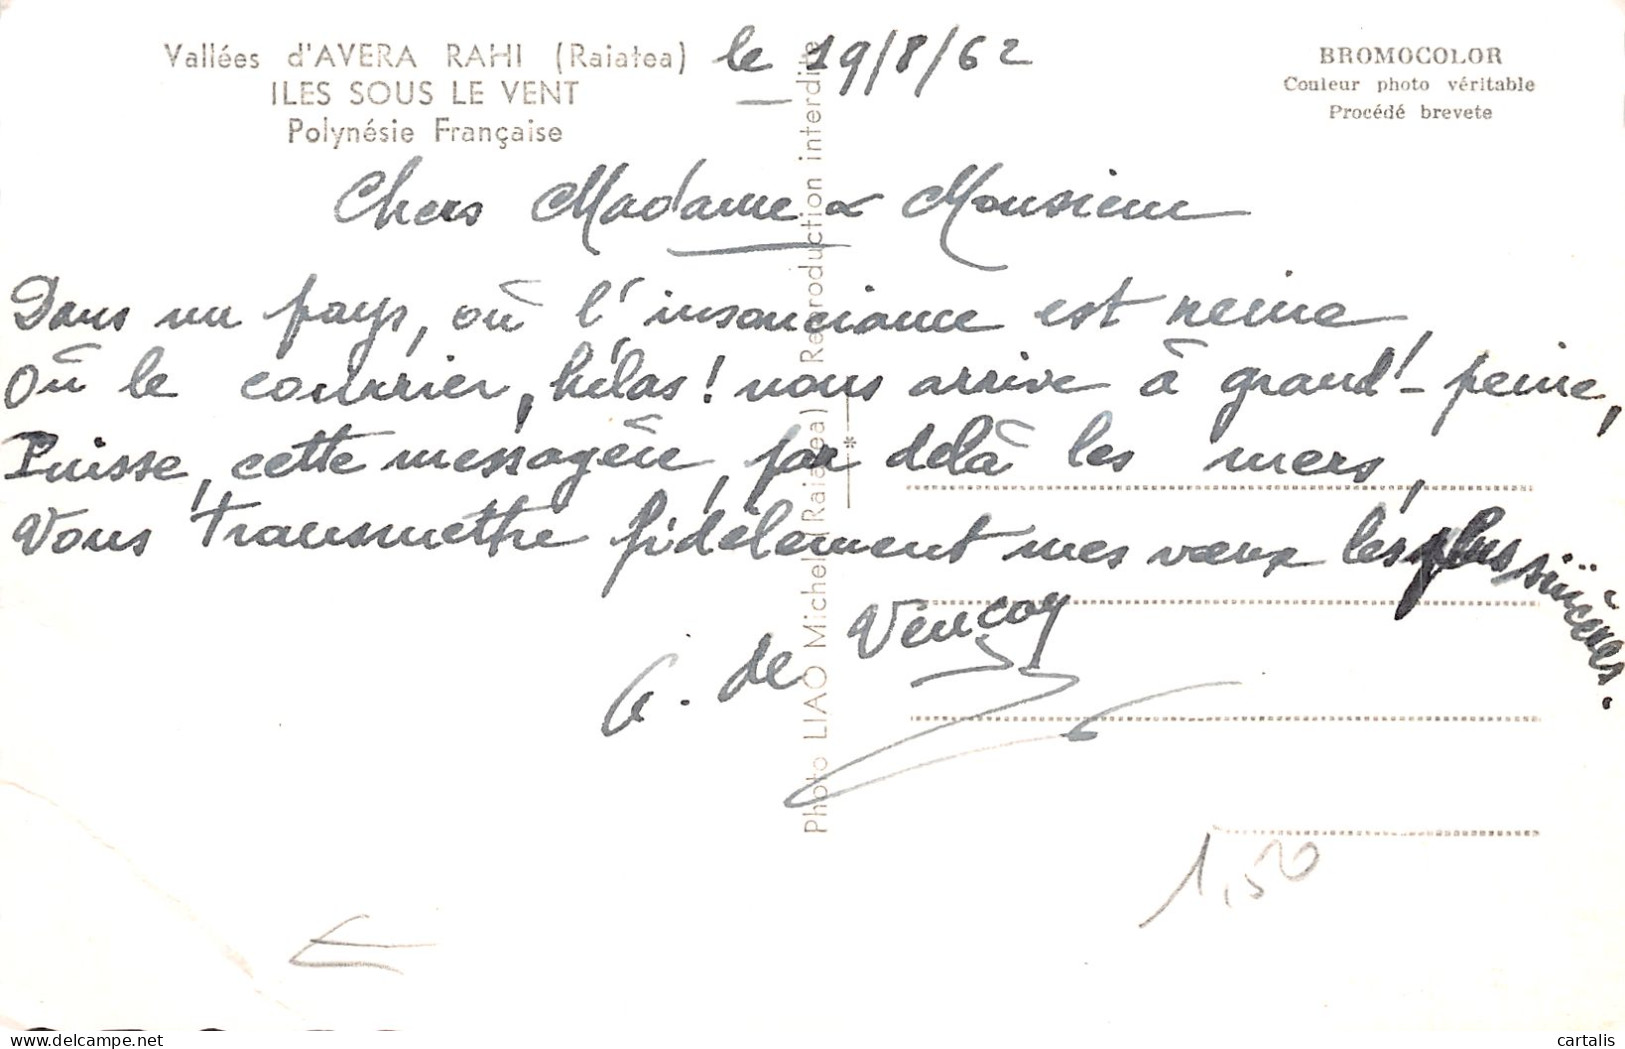 Vallées d'AVERA RAHI (Raiatea)
ILES SOUS LE VENT
Polynésie Française
le 19/8/62
BROMOCOLOR
Couleur photo véritable
Procédé brevete
Chers Madame & Monsieur
Dans un pays, où l'insouciance est reine,
Où le courrier, hélas! nous arrive à grand'-peine,
Puisse, cette messagère, par delà les mers,
Vous transmettre fidèlement mes vœux les plus sincères.
G. de Vencay
Photo LIAO Michel (Raiatea) Reproduction interdite
1,50
cartalis